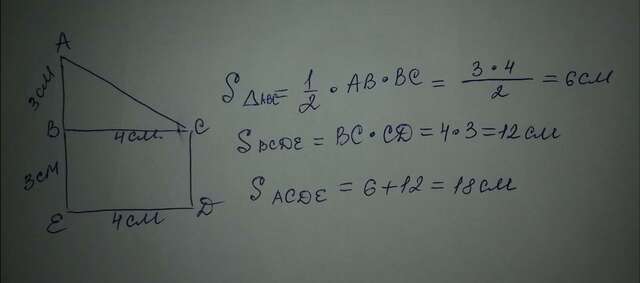 A
3см
B
4см.
C
3см
E
4см
D
S△ABC = 1/2 · AB · BC = 3·4/2 = 6см
SBCDE = BC · CD = 4·3 = 12см
SACDE = 6+12 = 18см